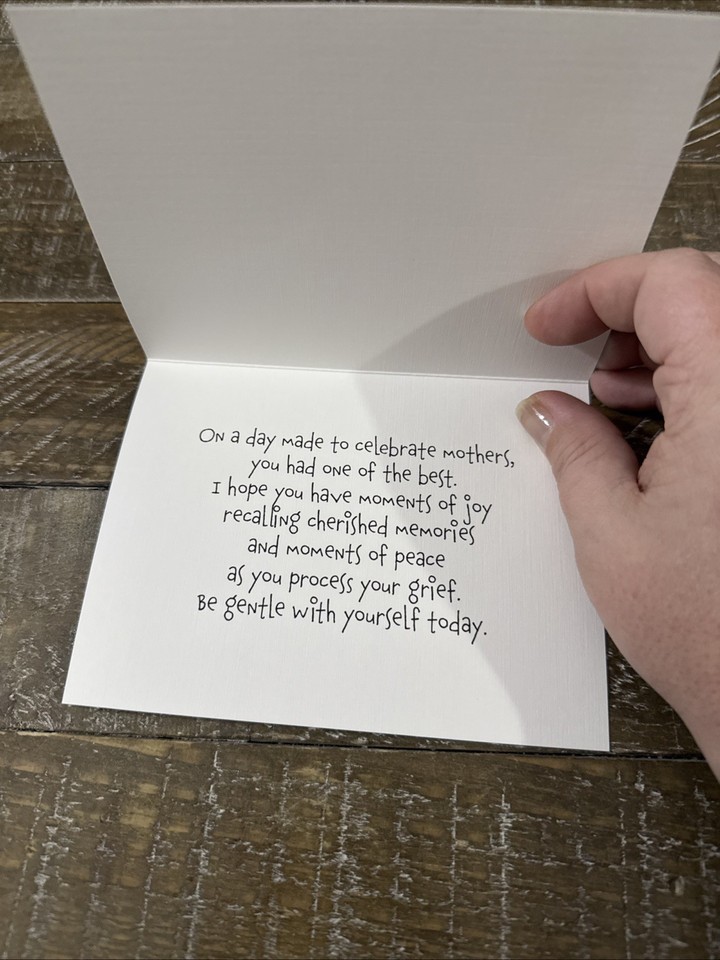 On a day made to celebrate mothers,
you had one of the best.
I hope you have moments of joy
recalling cherished memories
and moments of peace
as you process your grief.
Be gentle with yourself today.